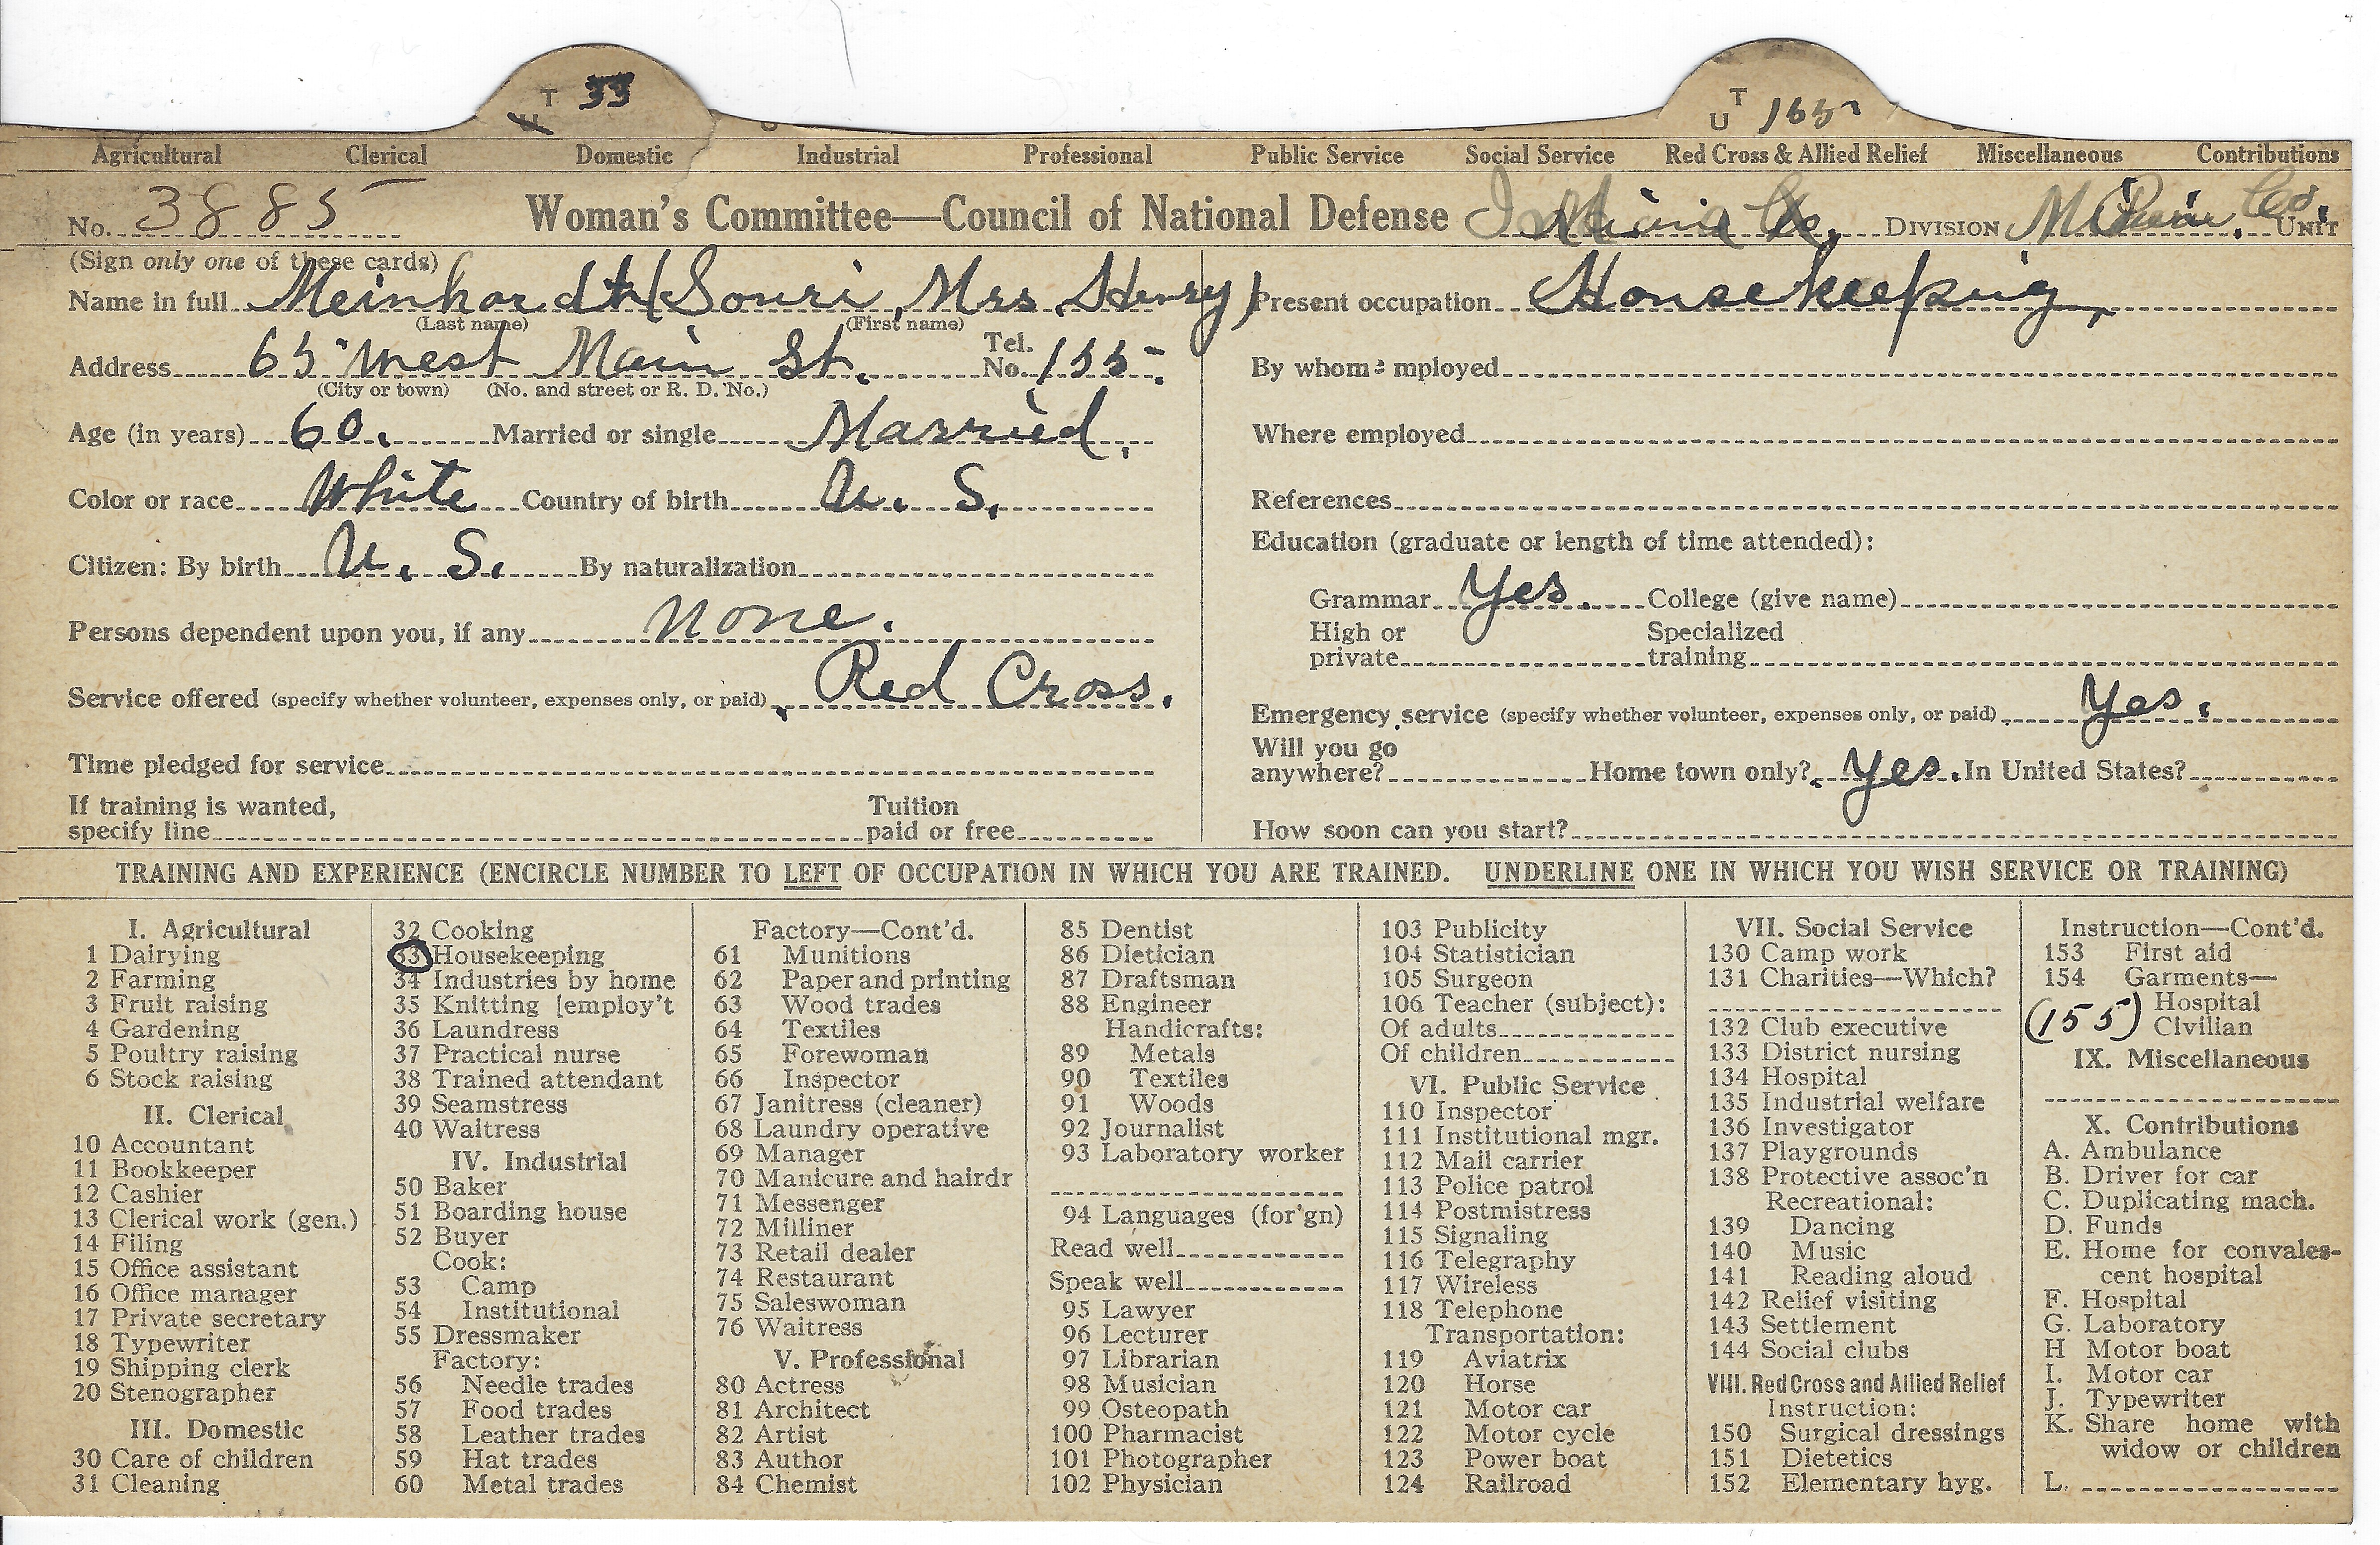 T 33
U
T
U 155
Agricultural Clerical Domestic Industrial Professional Public Service Social Service Red Cross & Allied Relief Miscellaneous Contributions
No. 3885 Woman's Committee—Council of National Defense Miami Co. DIVISION Co. UNIT
(Sign only one of these cards)
Name in full Meinhardt (Souri, Mrs. Henry) Present occupation Housekeeping,
(Last name) (First name)
Address 65 West Main St. Tel. No. 155.
(City or town) (No. and street or R. D. No.)
By whom employed
Age (in years) 60. Married or single Married.
Where employed
Color or race White Country of birth U. S.
References
Education (graduate or length of time attended):
Citizen: By birth U. S. By naturalization
Grammar Yes. College (give name)
Persons dependent upon you, if any None.
High or private Specialized training
Service offered (specify whether volunteer, expenses only, or paid) Red Cross.
Emergency service (specify whether volunteer, expenses only, or paid) Yes.
Time pledged for service
Will you go anywhere? Home town only? Yes. In United States?
If training is wanted, specify line Tuition paid or free
How soon can you start?
TRAINING AND EXPERIENCE (ENCIRCLE NUMBER TO LEFT OF OCCUPATION IN WHICH YOU ARE TRAINED. UNDERLINE ONE IN WHICH YOU WISH SERVICE OR TRAINING)
I. Agricultural
1 Dairying
2 Farming
3 Fruit raising
4 Gardening
5 Poultry raising
6 Stock raising
II. Clerical
10 Accountant
11 Bookkeeper
12 Cashier
13 Clerical work (gen.)
14 Filing
15 Office assistant
16 Office manager
17 Private secretary
18 Typewriter
19 Shipping clerk
20 Stenographer
III. Domestic
30 Care of children
31 Cleaning
32 Cooking
33 Housekeeping
34 Industries by home
35 Knitting [employ't
36 Laundress
37 Practical nurse
38 Trained attendant
39 Seamstress
40 Waitress
IV. Industrial
50 Baker
51 Boarding house
52 Buyer
Cook:
53 Camp
54 Institutional
55 Dressmaker
Factory:
56 Needle trades
57 Food trades
58 Leather trades
59 Hat trades
60 Metal trades
Factory—Cont'd.
61 Munitions
62 Paper and printing
63 Wood trades
64 Textiles
65 Forewoman
66 Inspector
67 Janitress (cleaner)
68 Laundry operative
69 Manager
70 Manicure and hairdr
71 Messenger
72 Milliner
73 Retail dealer
74 Restaurant
75 Saleswoman
76 Waitress
V. Professional
80 Actress
81 Architect
82 Artist
83 Author
84 Chemist
85 Dentist
86 Dietician
87 Draftsman
88 Engineer
Handicrafts:
89 Metals
90 Textiles
91 Woods
92 Journalist
93 Laboratory worker
94 Languages (for'gn)
Read well
Speak well
95 Lawyer
96 Lecturer
97 Librarian
98 Musician
99 Osteopath
100 Pharmacist
101 Photographer
102 Physician
103 Publicity
104 Statistician
105 Surgeon
106 Teacher (subject):
Of adults
Of children
VI. Public Service
110 Inspector
111 Institutional mgr.
112 Mail carrier
113 Police patrol
114 Postmistress
115 Signaling
116 Telegraphy
117 Wireless
118 Telephone
Transportation:
119 Aviatrix
120 Horse
121 Motor car
122 Motor cycle
123 Power boat
124 Railroad
VII. Social Service
130 Camp work
131 Charities—Which?
132 Club executive
133 District nursing
134 Hospital
135 Industrial welfare
136 Investigator
137 Playgrounds
138 Protective assoc'n
Recreational:
139 Dancing
140 Music
141 Reading aloud
142 Relief visiting
143 Settlement
144 Social clubs
VIII. Red Cross and Allied Relief
Instruction:
150 Surgical dressings
151 Dietetics
152 Elementary hyg.
Instruction—Cont'd.
153 First aid
154 Garments—
Hospital
(155) Civilian
IX. Miscellaneous
X. Contributions
A. Ambulance
B. Driver for car
C. Duplicating mach.
D. Funds
E. Home for convales-
cent hospital
F. Hospital
G. Laboratory
H Motor boat
I. Motor car
J. Typewriter
K. Share home with
widow or children
L.